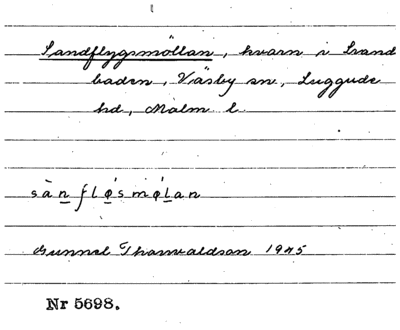 Sandflygsmöllan, kvarn i Strand
baden, Väsby sn, Luggude
hd, Malm l.
sànfløsmølan
Gunnel Thorvaldson 1945
Nr 5698.